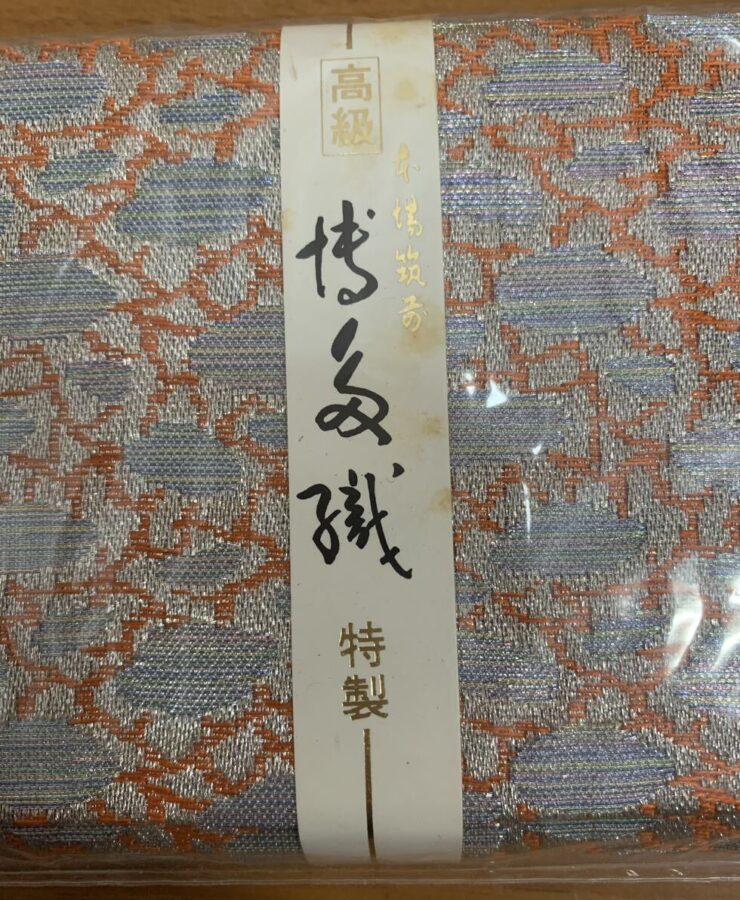 高級
本場筑前
博多織
特製